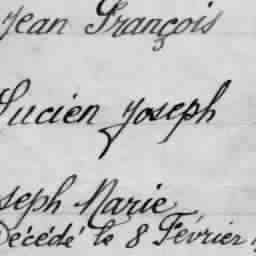 Jean François
Lucien Joseph
seph Marie
Décédé le 8 Février